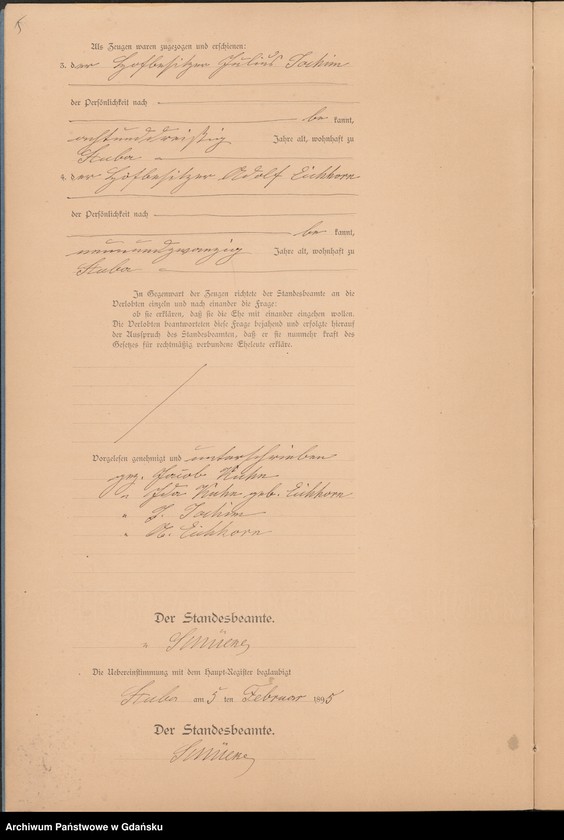 Als Zeugen waren zugezogen und erschienen:
3. der Hofbesitzer Julius Jochim
der Persönlichkeit nach
be kannt,
achtunddreißig Jahre alt, wohnhaft zu
Stuba
4. der Hofbesitzer Adolf Eichhorn
der Persönlichkeit nach
be kannt,
neunundzwanzig Jahre alt, wohnhaft zu
Stuba
In Gegenwart der Zeugen richtete der Standesbeamte an die
Verlobten einzeln und nach einander die Frage:
ob sie erklären, daß sie die Ehe mit einander eingehen wollen.
Die Verlobten beantworteten diese Frage bejahend und erfolgte hierauf
der Ausspruch des Standesbeamten, daß er sie nunmehr kraft des
Gesetzes für rechtmäßig verbundene Eheleute erkläre.
Vorgelesen genehmigt und unterschrieben
gez. Jacob Kuhn
" Ida Kuhn geb. Eichhorn
" J. Jochim
" A. Eichhorn
Der Standesbeamte.
"
Die Uebereinstimmung mit dem Haupt-Register beglaubigt
Stuba am 5 ten Februar 1895
Der Standesbeamte.
Archiwum Państwowe w Gdańsku